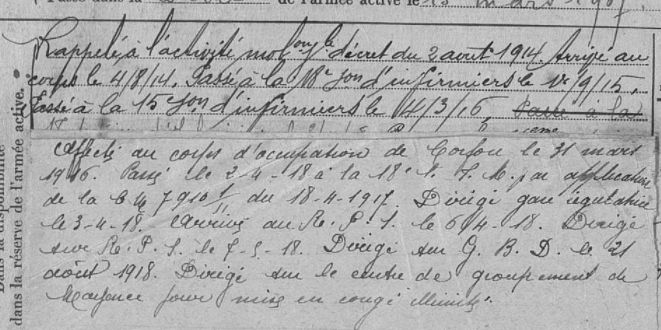 de l'armée active le 13 mars 1907.
Rappelé à l'activité mob. décret du 2 août 1914. Arrivé au
corps le 4/8/14. Passé à la 18e Son d'infirmiers le 1er/9/15.
Passé à la 15e Son d'infirmiers le 14/3/16. Passé à la
Affecté au corps d'occupation de Corfou le 31 mars
1916. Passé le 2-4-18 à la 18e S. I. M. par application
de la C.M. 7910 du 18-4-1917. Dirigé gare régulatrice
le 3-4-18. Arrivé au R. P. S. le 6/4-18. Dirigé
sur R. P. S. le 7-5-18. Dirigé sur G. B. D. le 21
août 1918. Dirigé sur le centre de groupement de
Mayence pour mise en congé illimité.
Dans la disponibilité
dans la réserve de l'armée active.